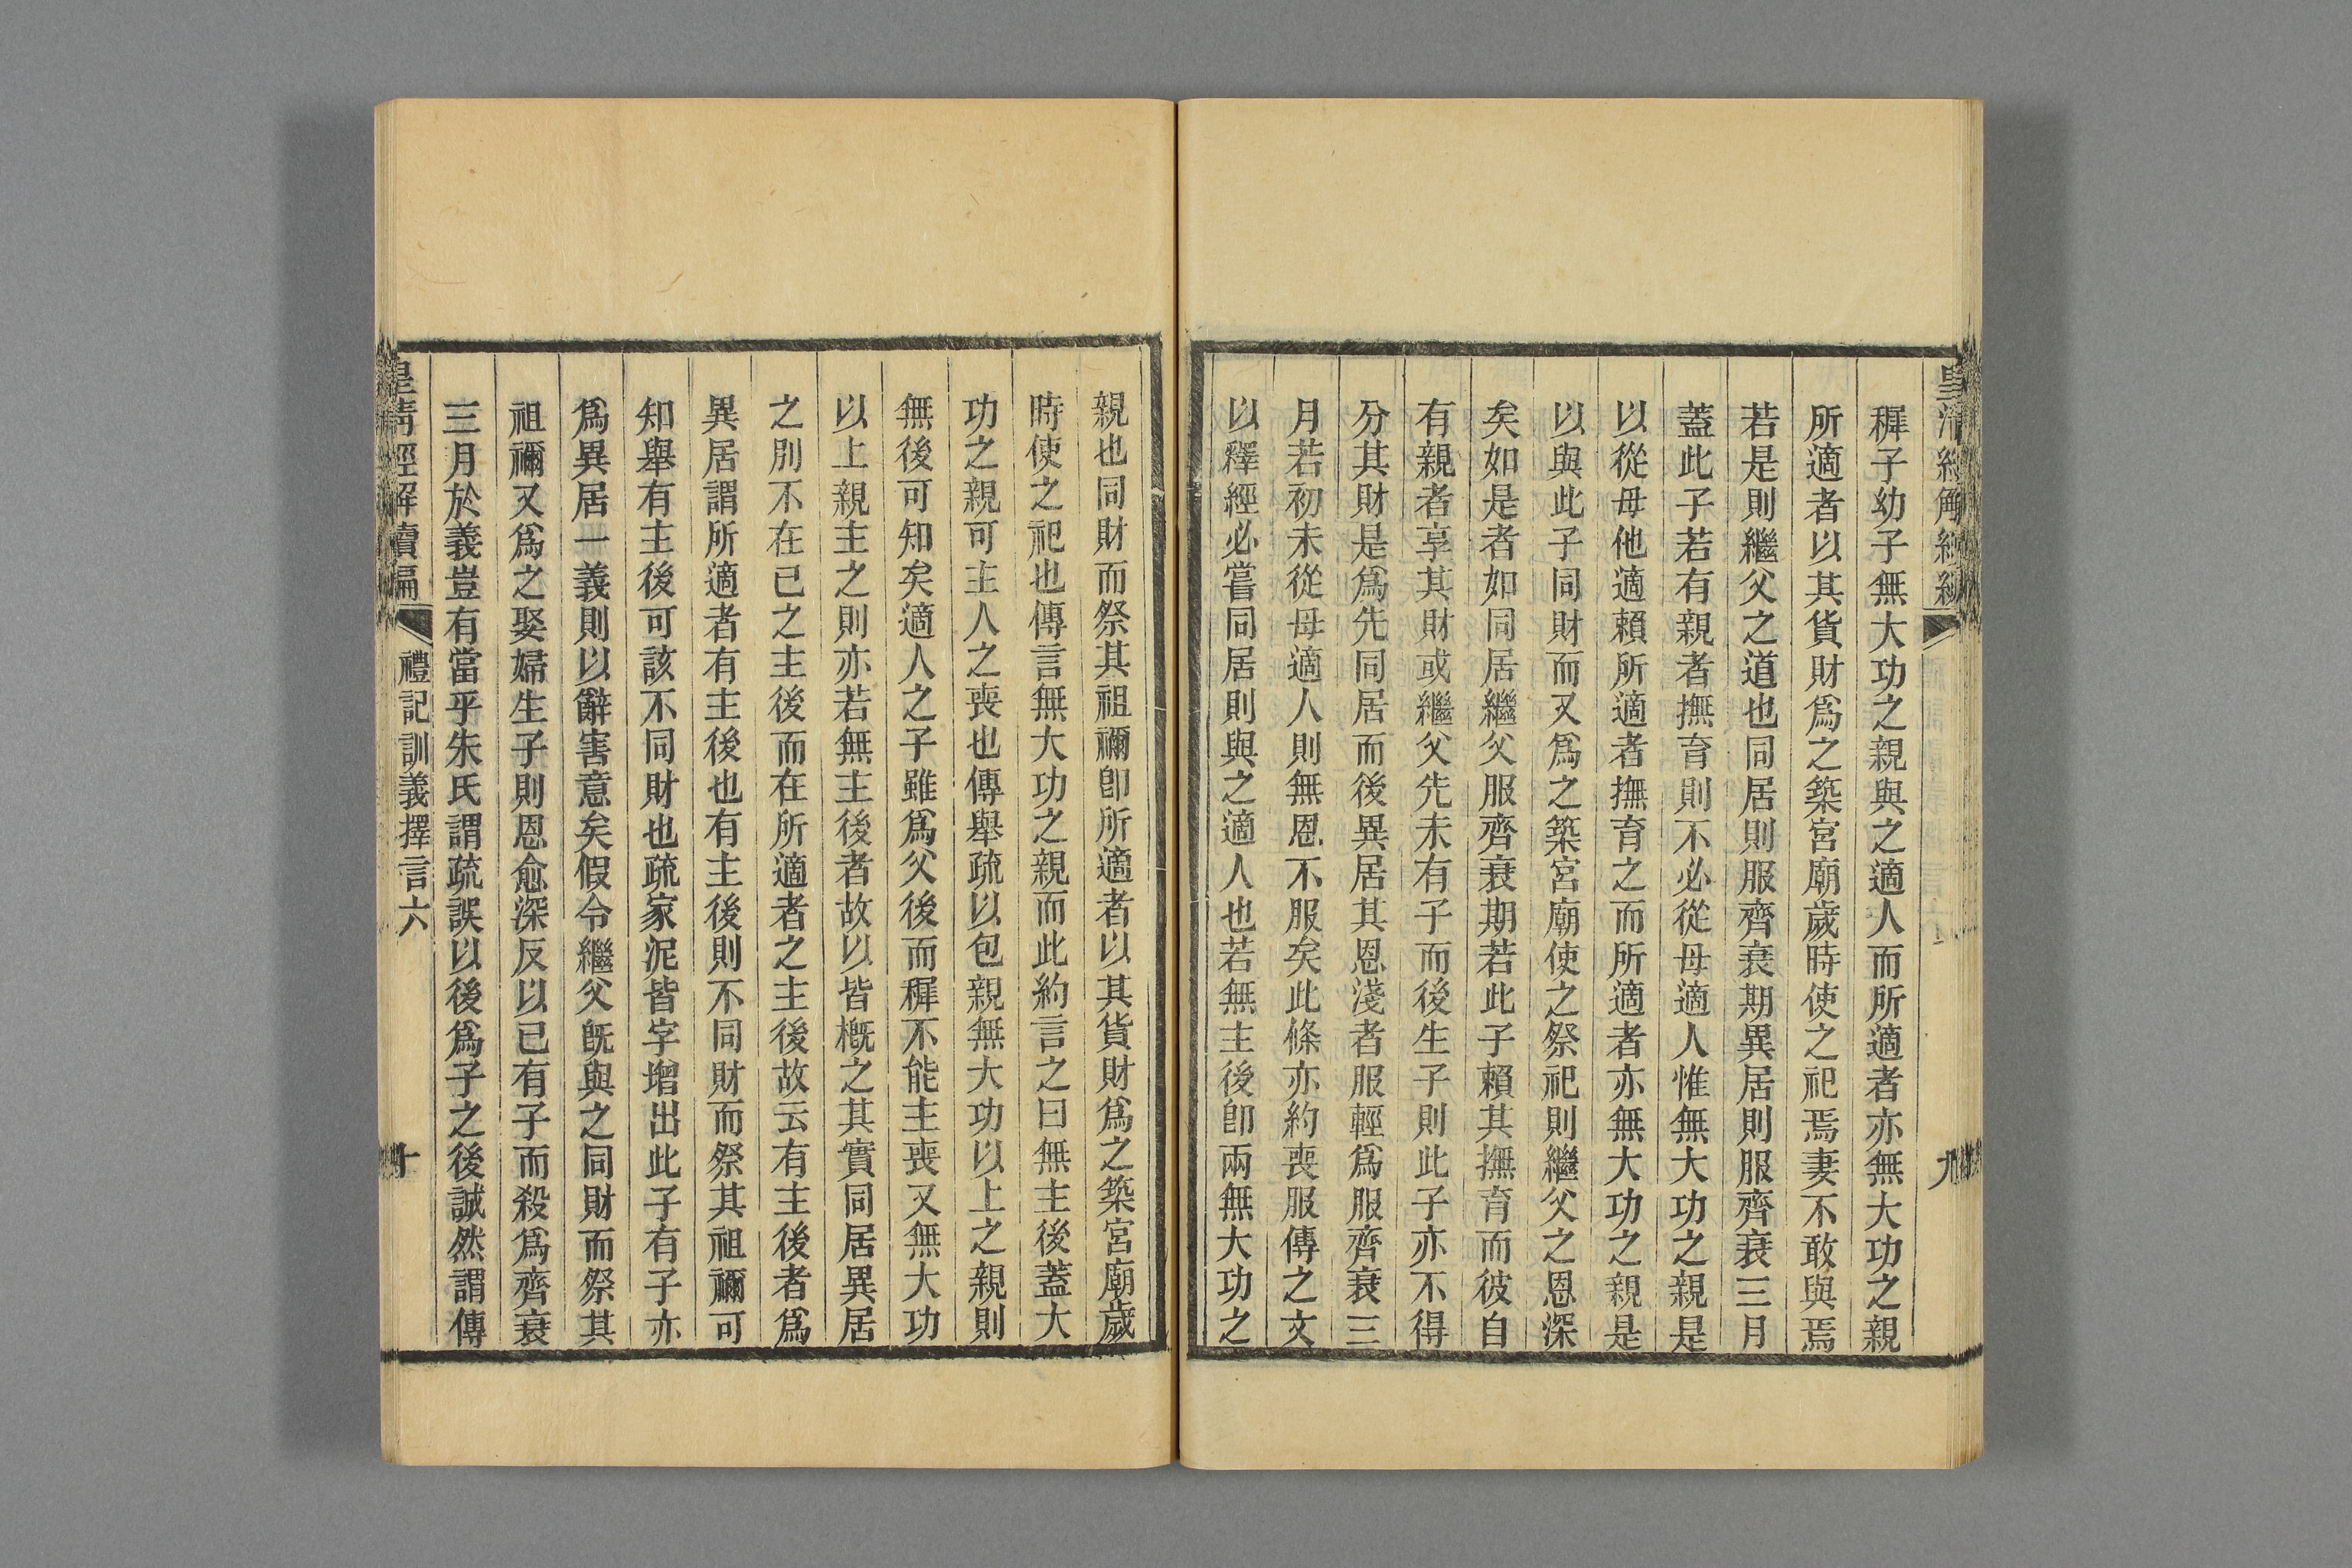 稺子幼子無大功之親與之適人而所適者亦無大功之親
所適者以其貨財爲之築宮廟歲時使之祀焉妻不敢與焉
若是則繼父之道也同居則服齊衰期異居則服齊衰三月
蓋此子若有親者撫育則不必從母適人惟無大功之親是
以從母他適賴所適者撫育之而所適者亦無大功之親是
以與此子同財而又爲之築宮廟使之祭祀則繼父之恩深
矣如是者如同居繼父服齊衰期若此子賴其撫育而彼自
有親者享其財或繼父先未有子而後生子則此子亦不得
分其財是爲先同居而後異居其恩淺者服輕爲服齊衰三
月若初未從母適人則無恩不服矣此條亦約喪服傳之文
以釋經必嘗同居則與之適人也若無主後卽兩無大功之
九
親也同財而祭其祖禰卽所適者以其貨財爲之築宮廟歲
時使之祀也傳言無大功之親而此約言之曰無主後蓋大
功之親可主人之喪也傳舉疏以包親無大功以上之親則
無後可知矣適人之子雖爲父後而稺不能主喪又無大功
以上親主之則亦若無主後者故以皆槪之其實同居異居
之別不在己之主後而在所適者之主後故云有主後者爲
異居謂所適者有主後也有主後則不同財而祭其祖禰可
知舉有主後可該不同財也疏家泥皆字增出此子有子亦
爲異居一義則以辭害意矣假令繼父旣與之同財而祭其
祖禰又爲之娶婦生子則恩愈深反以已有子而殺爲齊衰
三月於義豈有當乎朱氏謂疏誤以後爲子之後誠然謂傳
皇清經解續編
禮記訓義擇言六
十